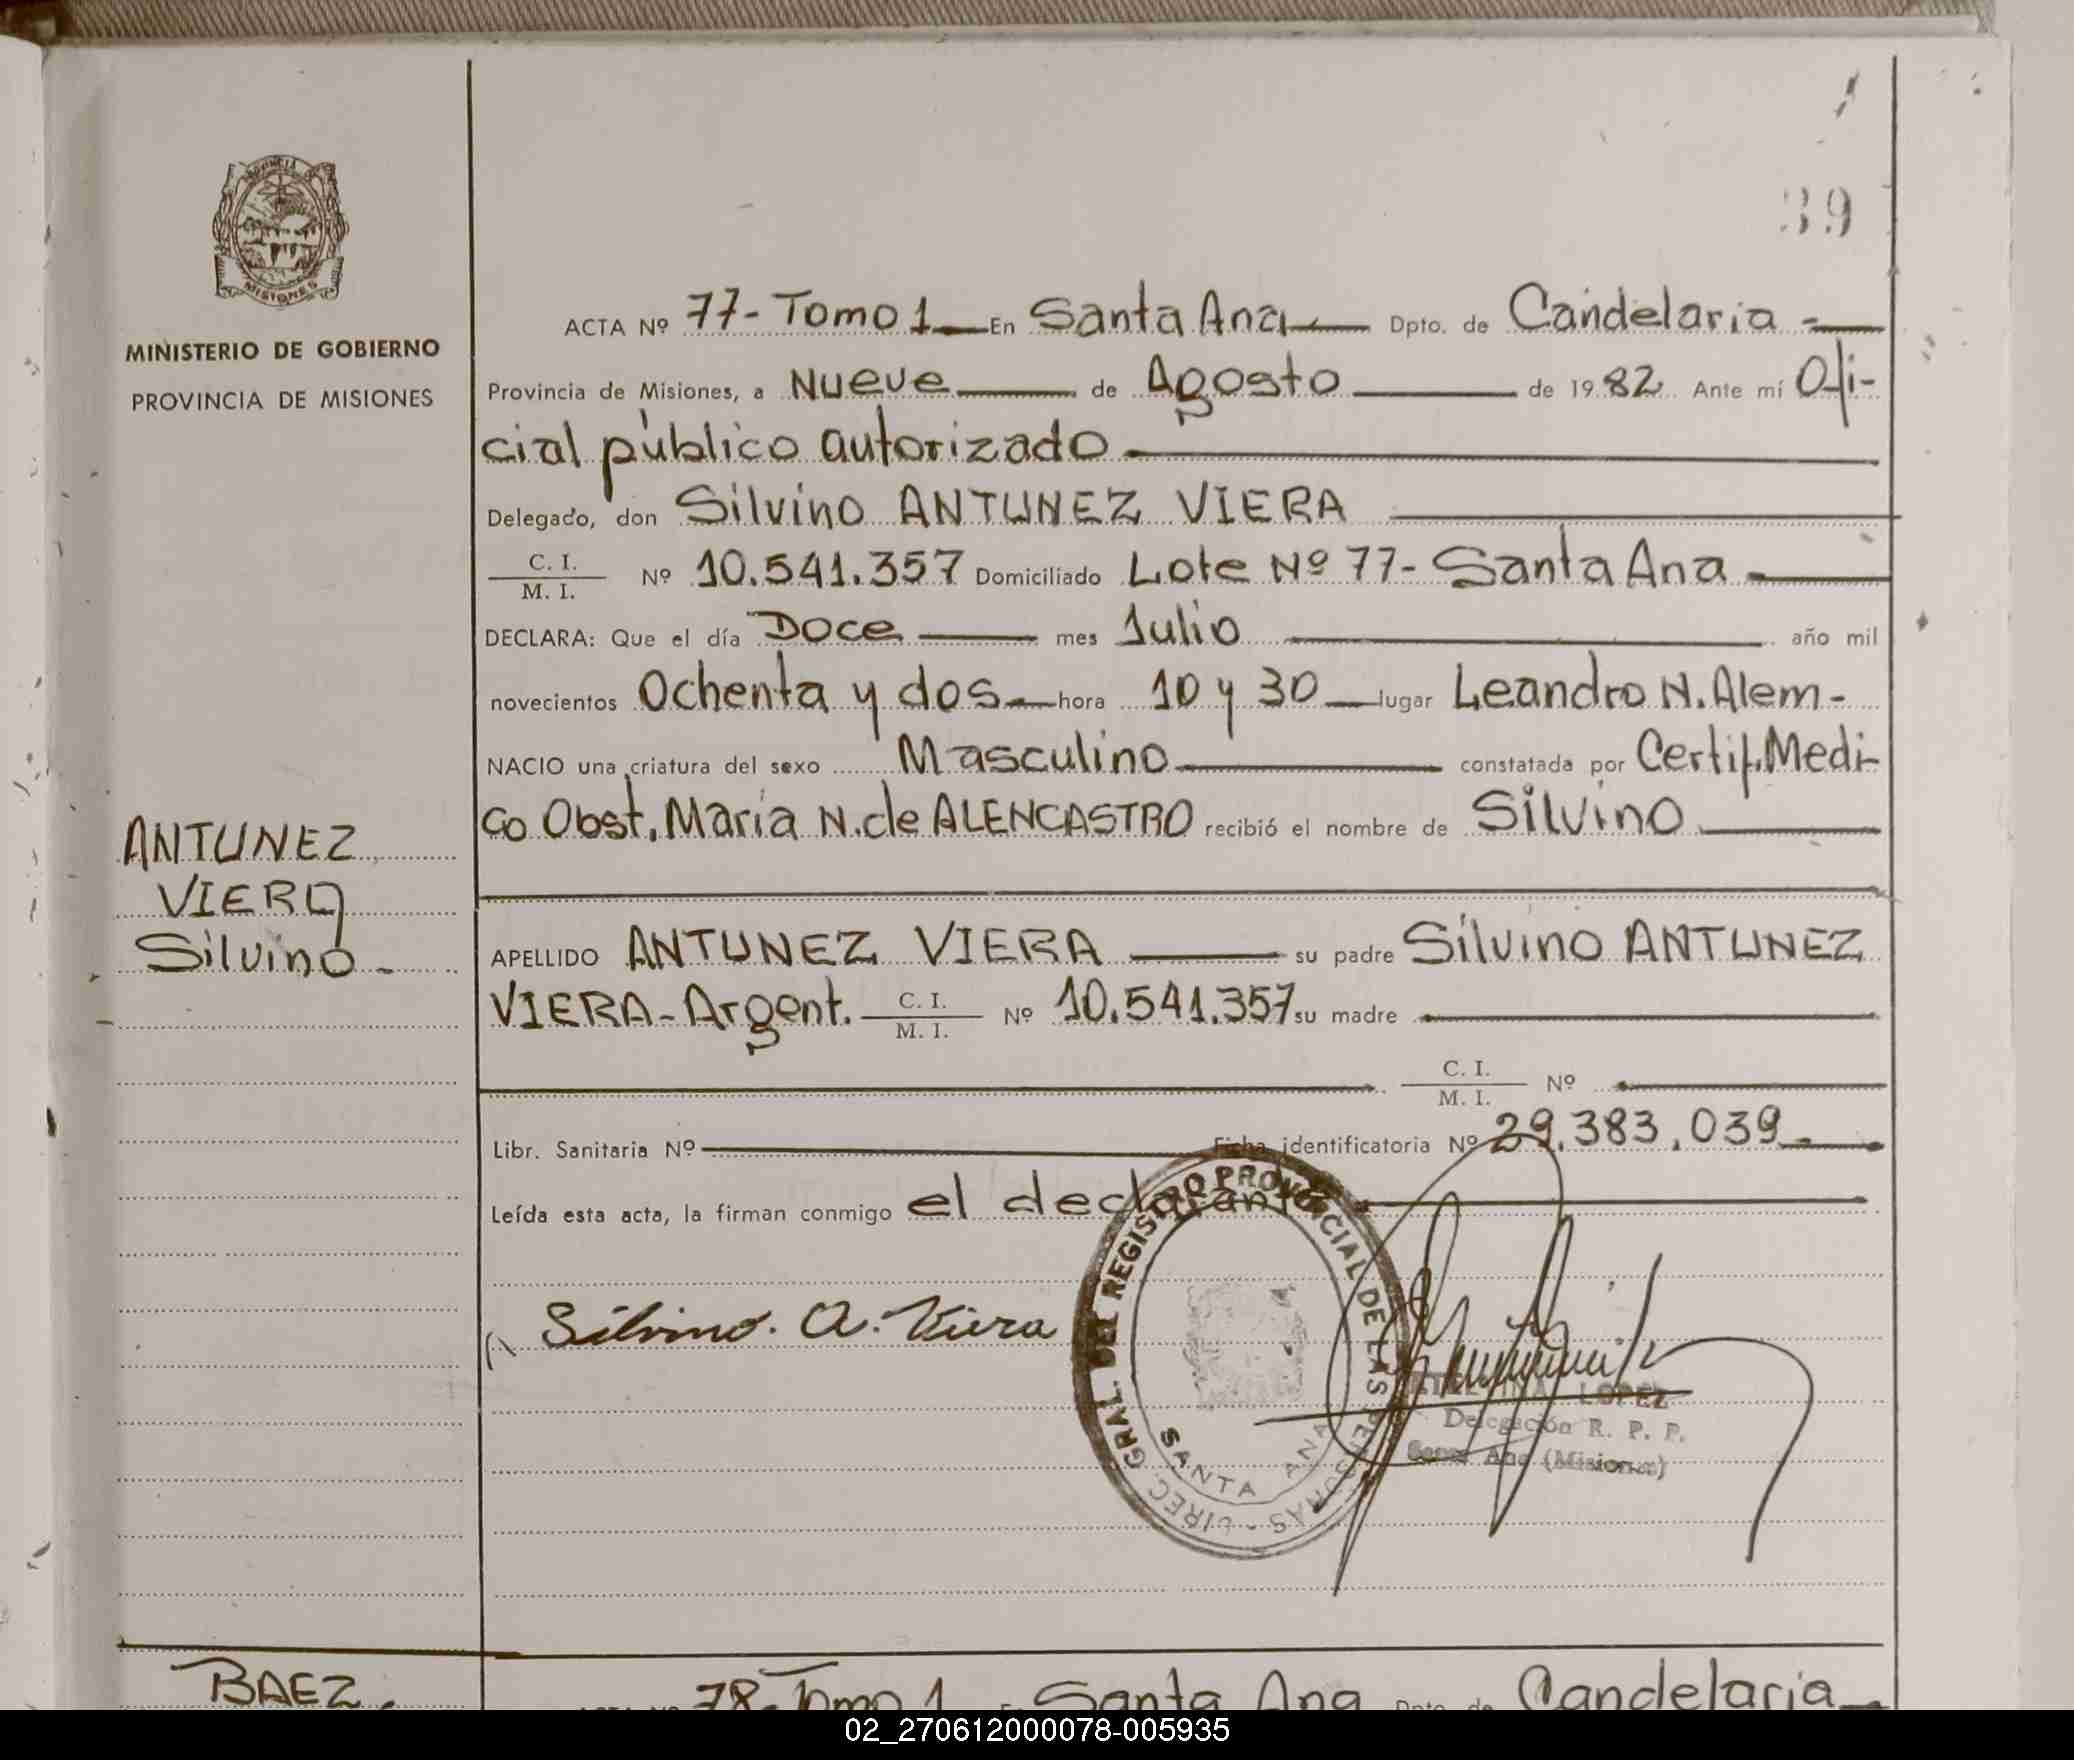 39
PROVINCIA
MISIONES
MINISTERIO DE GOBIERNO
PROVINCIA DE MISIONES
ACTA Nº 77- Tomo 1 En Santa Ana Dpto. de Candelaria -
Provincia de Misiones, a Nueve de Agosto de 1982 Ante mí Ofi-
cial público autorizado
Delegado, don Silvino ANTUNEZ VIERA
C. I.
M. I. Nº 10.541.357 Domiciliado Lote Nº 77- Santa Ana -
DECLARA: Que el día Doce mes Julio año mil
novecientos Ochenta y dos hora 10 y 30 lugar Leandro N. Alem-
NACIO una criatura del sexo Masculino constatada por Certif. Medi-
co Obst. Maria N. de ALENCASTRO recibió el nombre de Silvino
ANTUNEZ
VIERA
Silvino -
APELLIDO ANTUNEZ VIERA su padre Silvino ANTUNEZ
VIERA - Argent. C. I.
M. I. Nº 10.541.357 su madre
C. I.
M. I. Nº
Libr. Sanitaria Nº Ficha identificatoria Nº 29.383.039 -
Leída esta acta, la firman conmigo el declarante
Silvino. A. Viera
DIREC. GRAL. DEL REGISTRO PROVINCIAL DE LAS PERSONAS -
SANTA ANA
LOPEZ
Delegación R. P. P.
Santa Ana (Misiones)
BAEZ
ACTA Nº 78- Tomo 1 En Santa Ana Dpto. de Candelaria
02_270612000078-005935